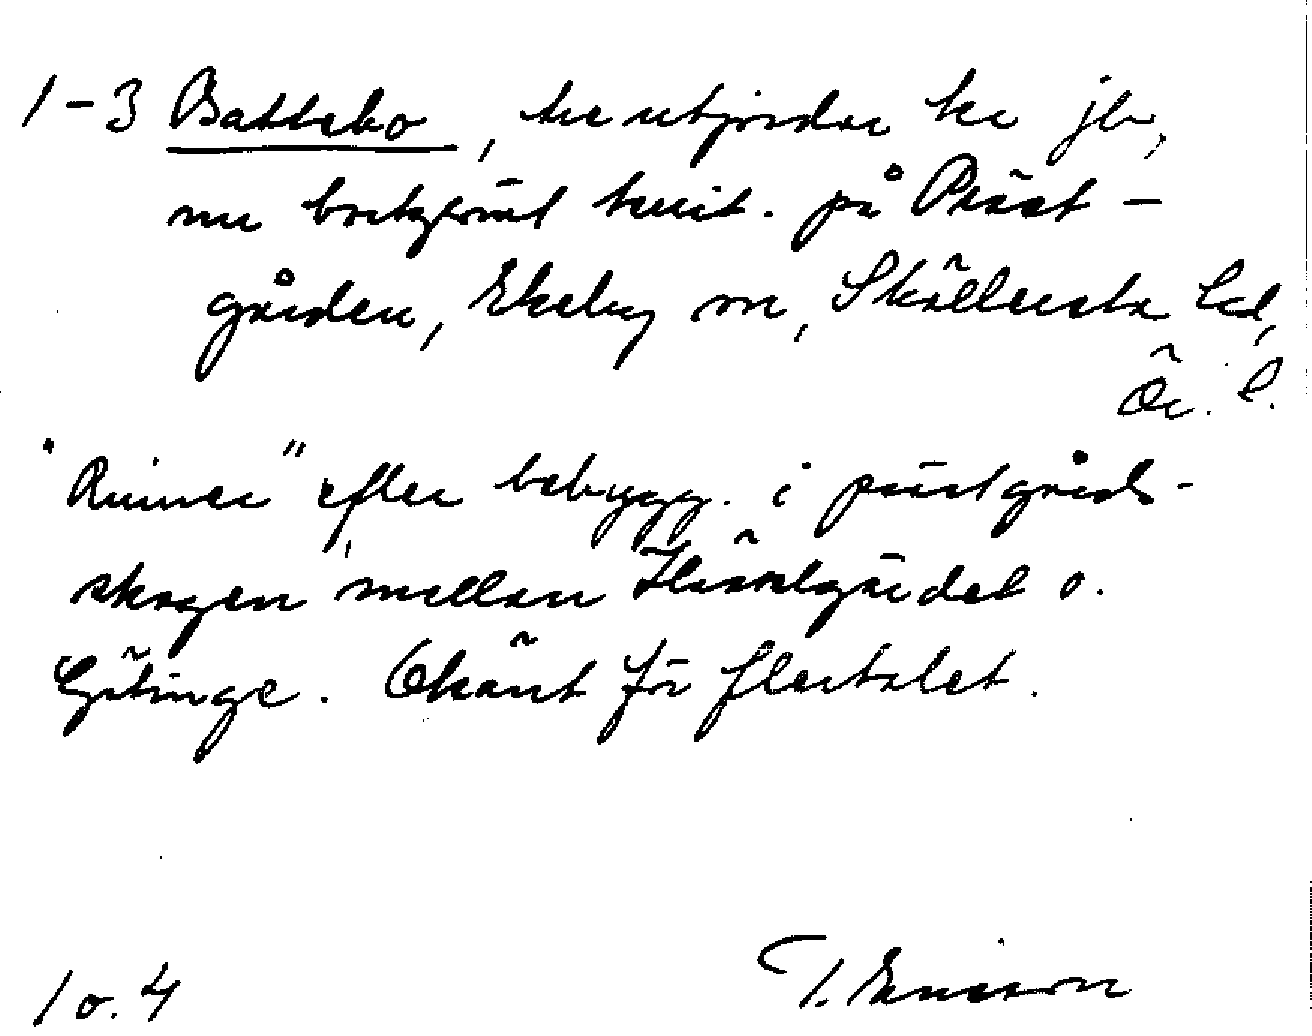 1-3 Battebo, tre utjordar ke jb,
nu bortglömt territ. på Präst-
gården, Ekeby sn, Sköllersta hd,
Ör. l.
"Ruiner" efter bebygg. i prästgårds-
skogen mellan Hästgärdet o.
Götinge. Okänt för flertalet.
1 o. 4 T. Ericsson